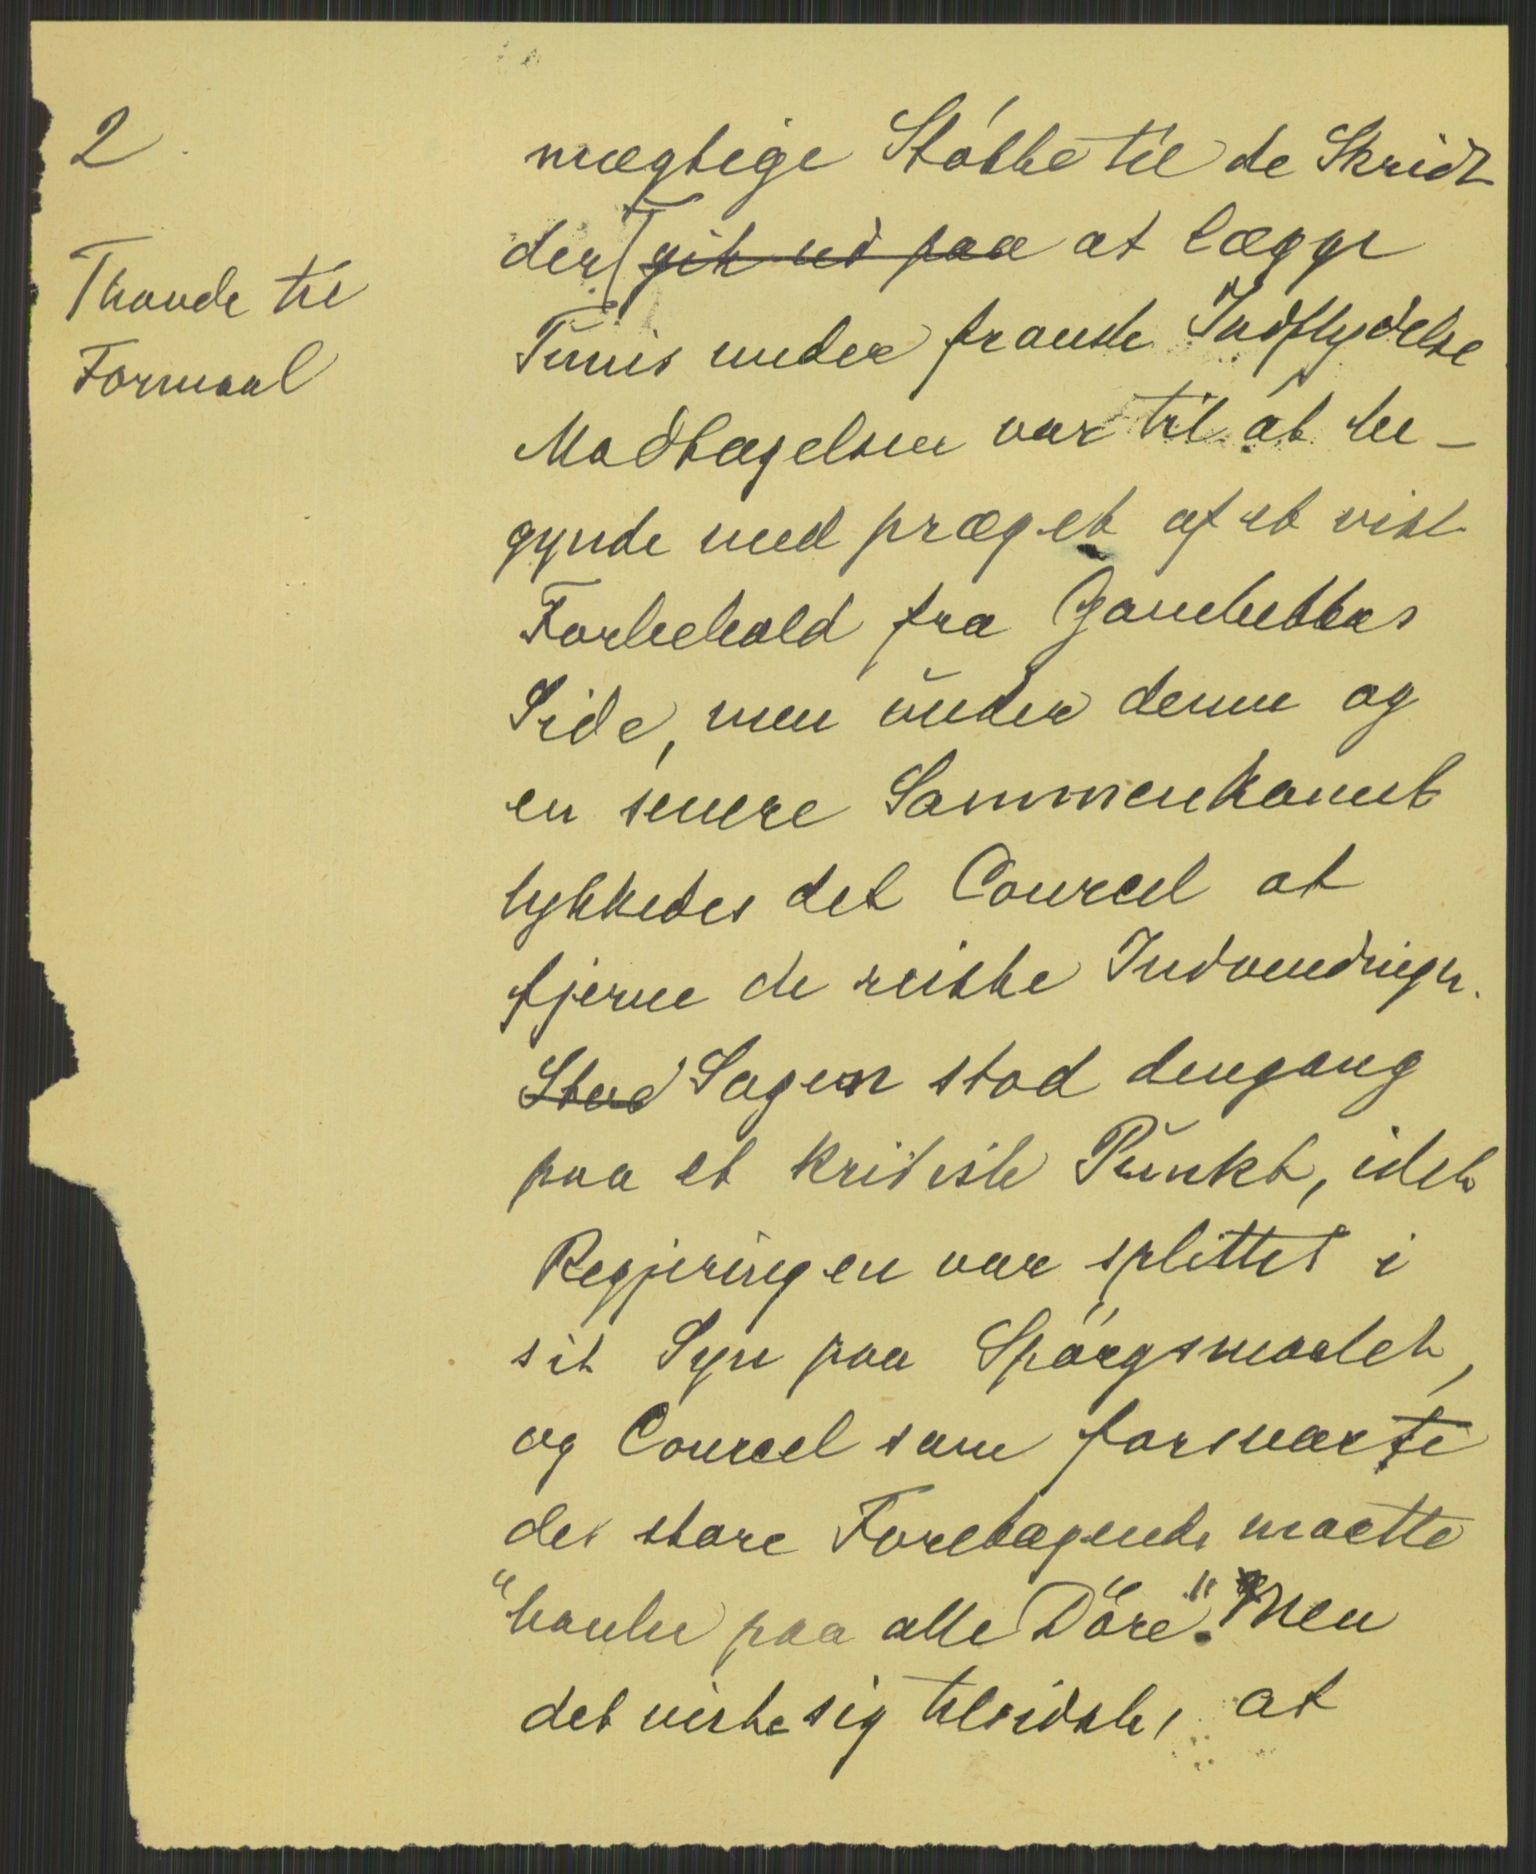 2
mægtige Støtte til de Skridt
der gik ud paa at lægge
Thavde til
Formaal
Tunis under fransk Indflydelse
Modtagelsen var til at be-
gynde med præget af et vist
Forbehold fra Gambettas
Side, men under denne og
en senere Sammenkomst
lykkedes det Courcel at
fjerne de reiste Indvendinger.
Stod Sagen stod dengang
paa et kritisk Punkt, idet
Regjeringen var splittet i
sit Syn paa Spörgsmaalet,
og Courcel som forsvarte
det store Foretagende maatte
"banke paa alle Döre". Men
det viste sig tilsidst, at